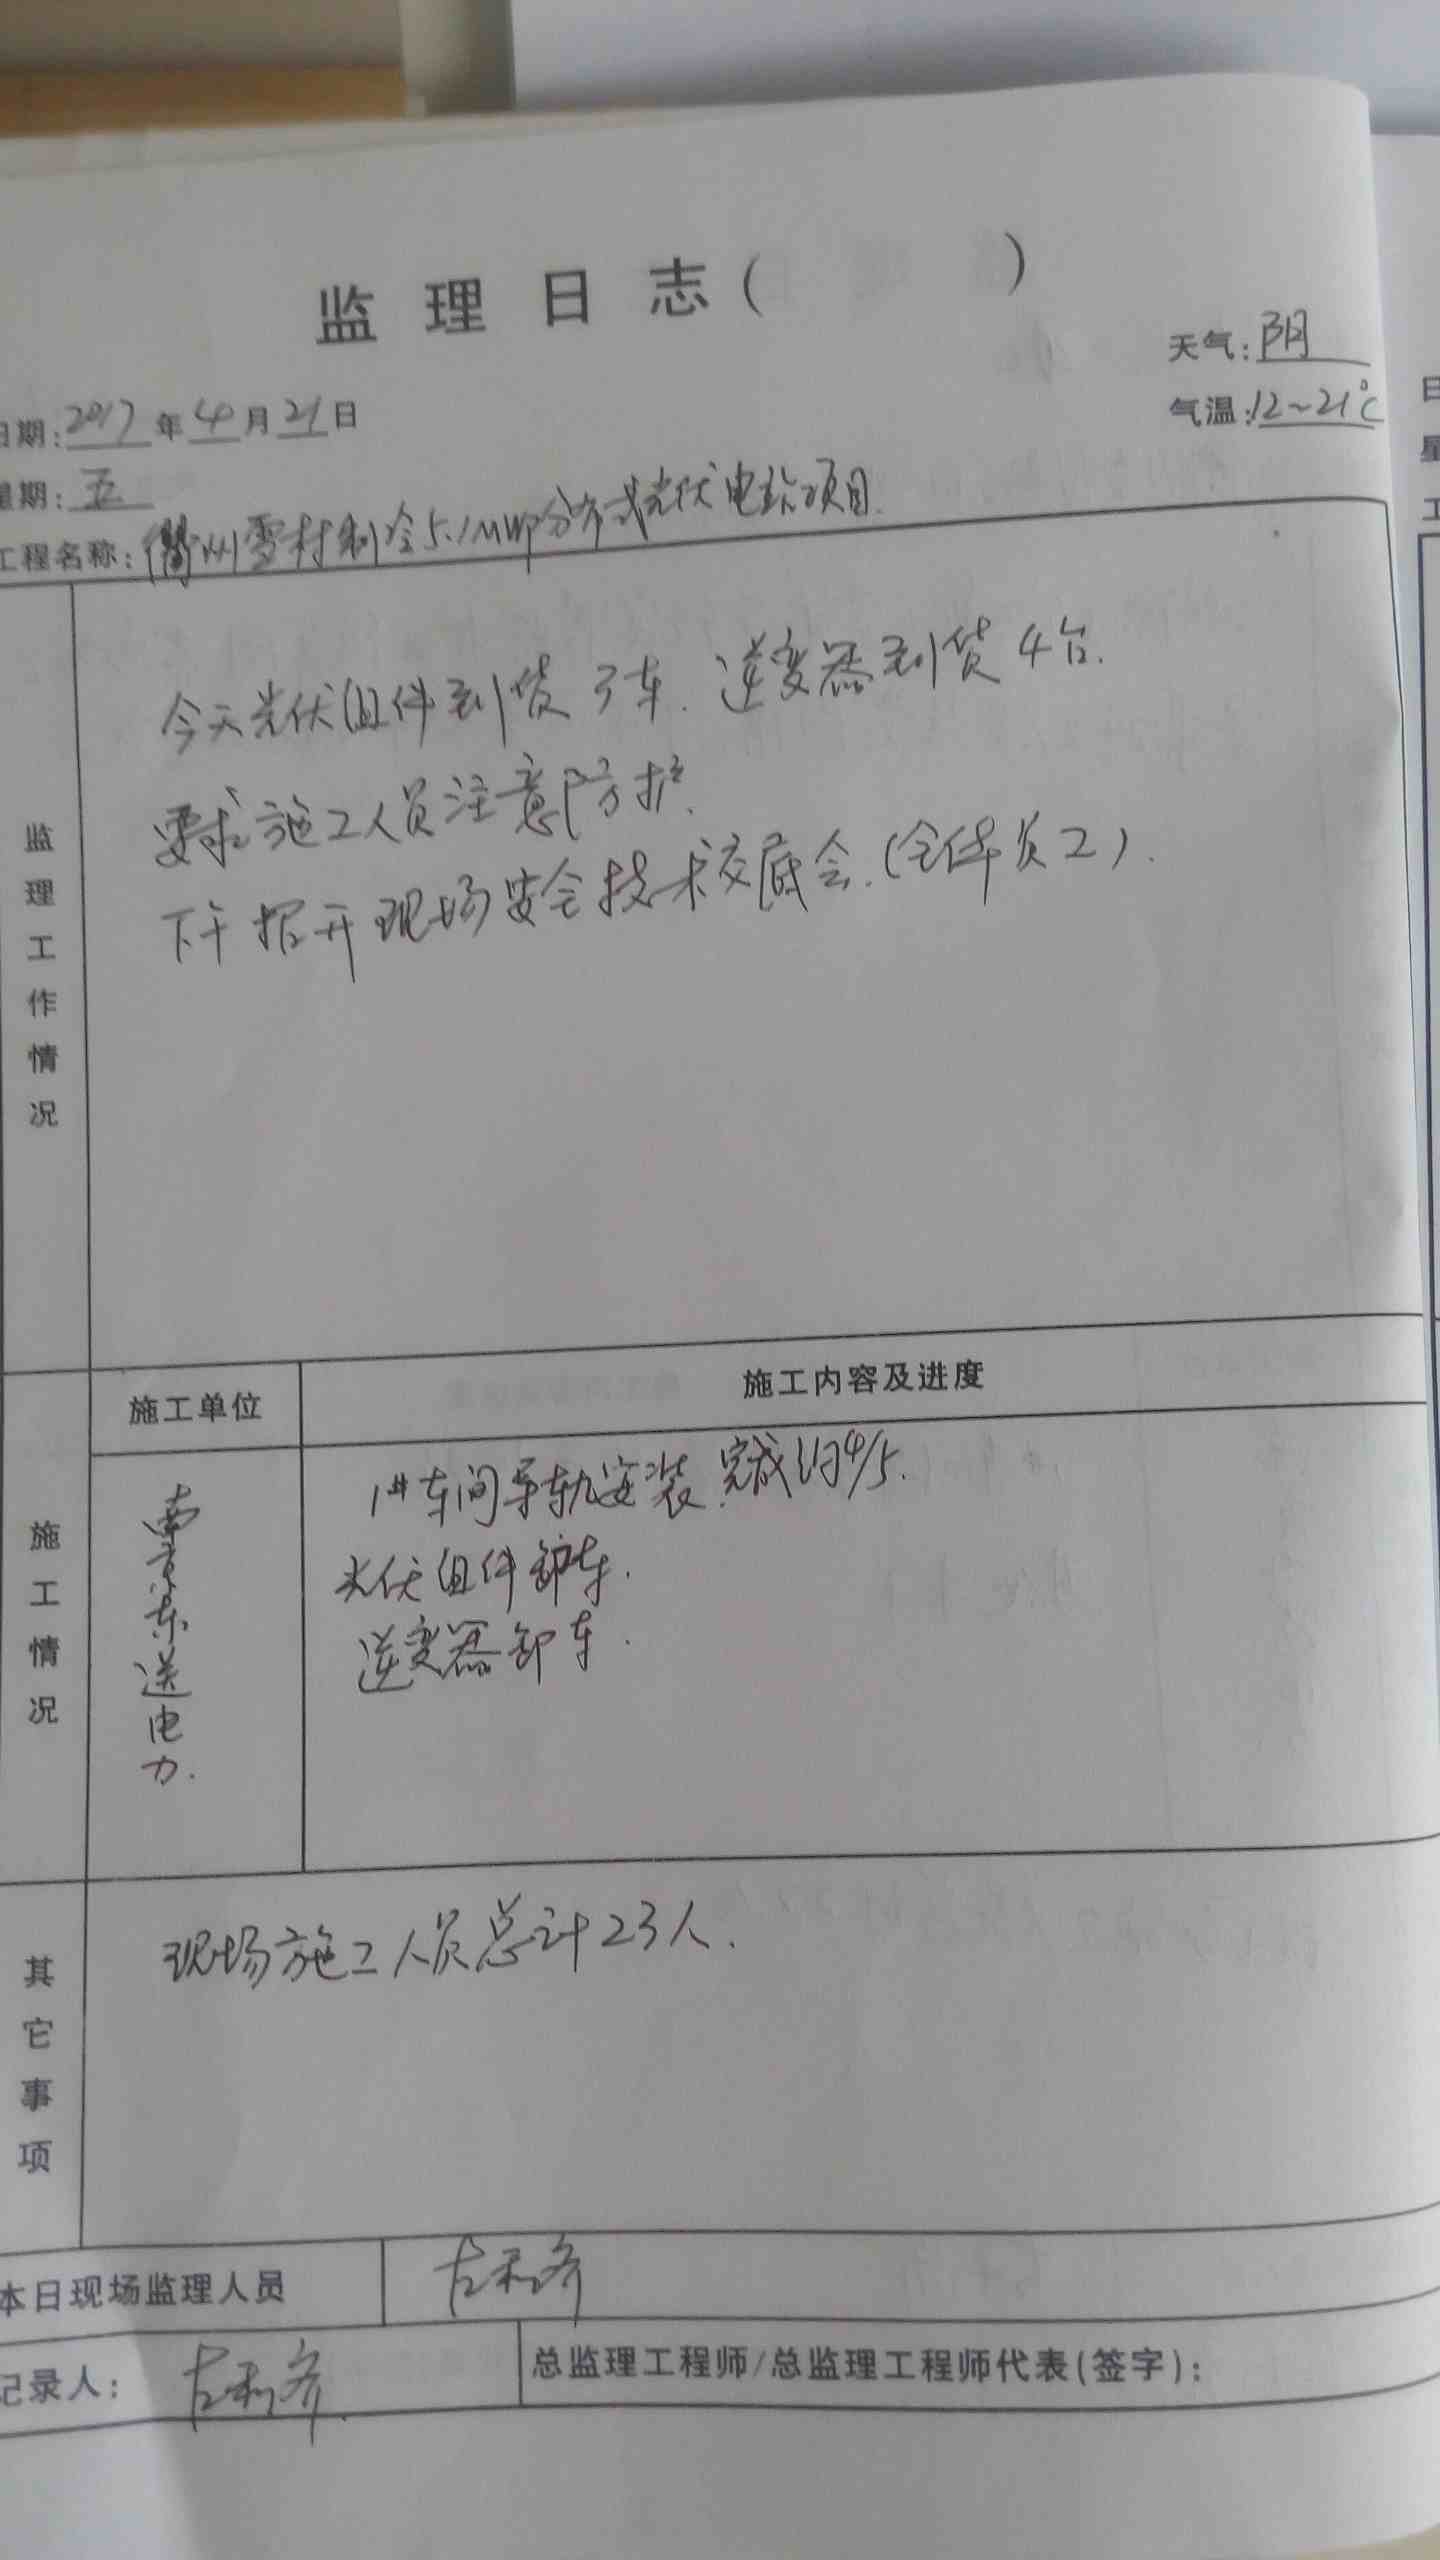 监理日志( )
天气:阴
日期:2017年4月21日
气温:12~21℃
星期:五
工程名称:衢州雪村制冷5.1MWP分布式光伏电站项目.
监理工作情况
今天光伏组件到货3车.逆变器到货4台.
要求施工人员注意防护.
下午招开现场安全技术交底会.(全体员工).
施工单位
施工内容及进度
施工情况
南京东送电力.
1#车间导轨安装.完成约4/5.
光伏组件卸车.
逆变器卸车.
其它事项
现场施工人员总计23人.
本日现场监理人员
记录人:
总监理工程师/总监理工程师代表(签字):
日
星
工